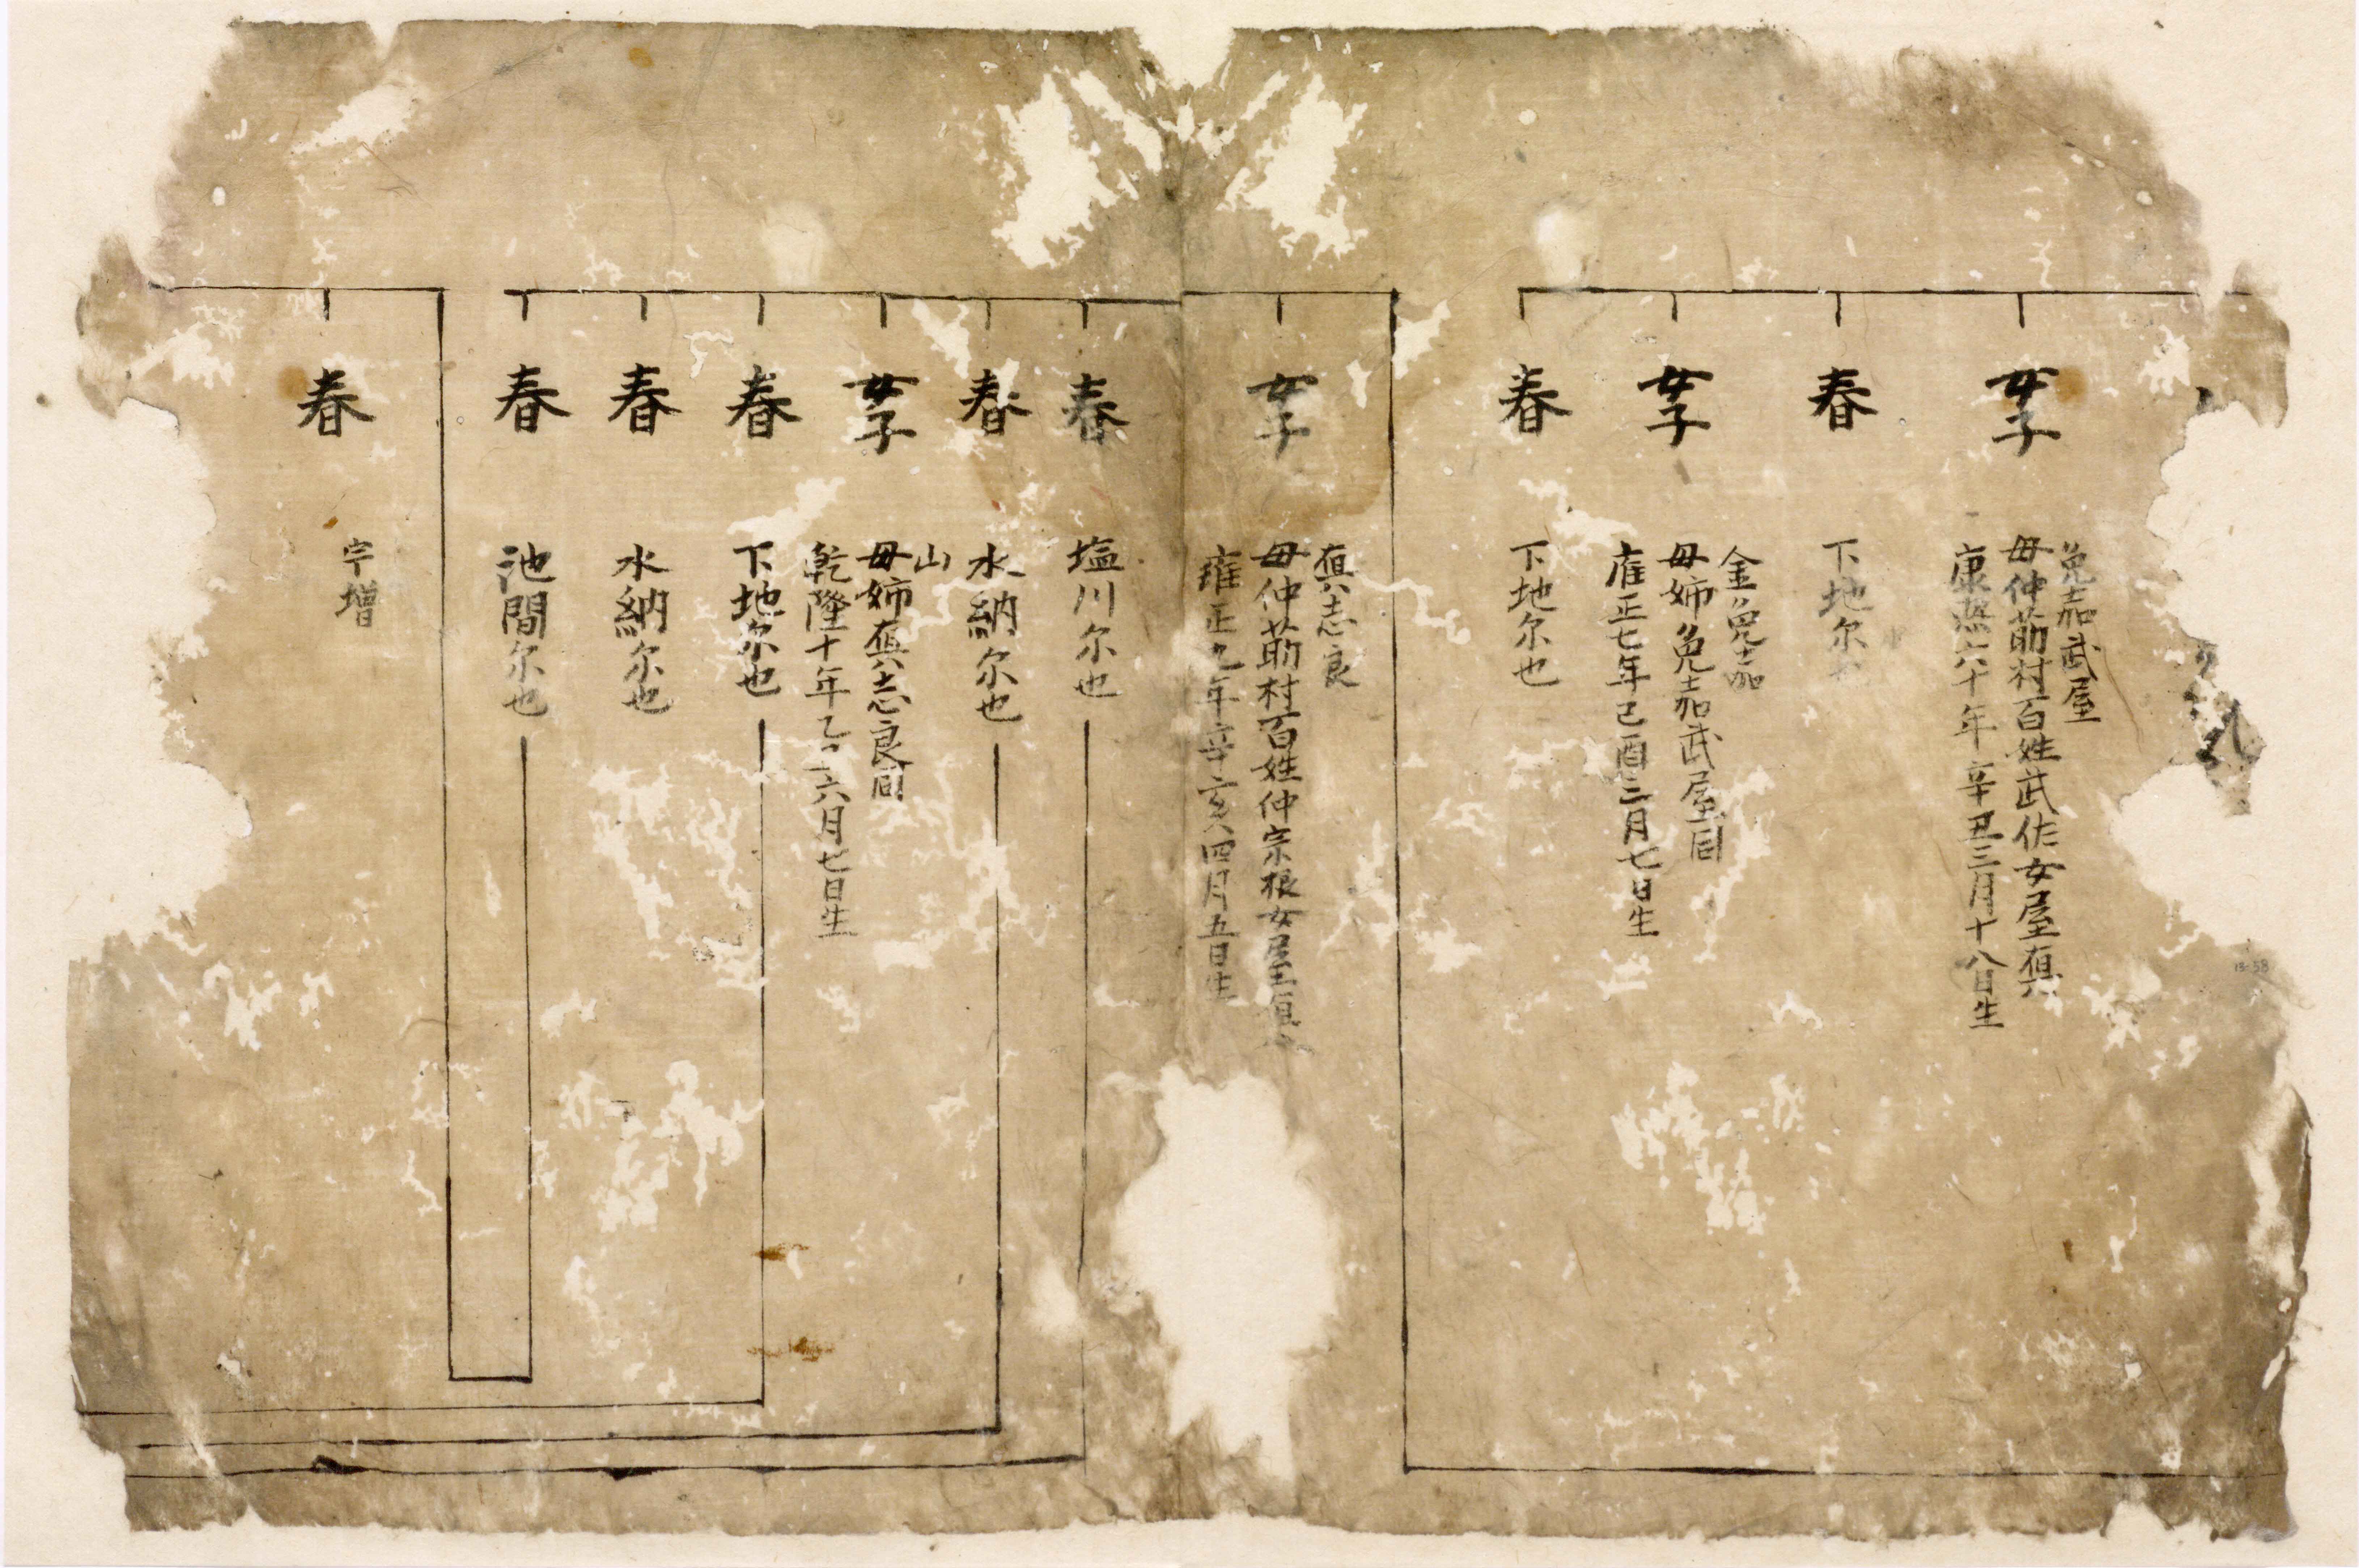 女子
免嘉武屋
母仲筋村百姓武佐女屋眞
康熙六十年辛丑三月十八日生
春
下地尓也
女子
金免嘉
母姉免嘉武屋同
雍正七年己酉三月七日生
春
下地尓也
女子
眞志良
母仲筋村百姓仲宗根女屋眞
雍正九年辛亥四月五日生
春
塩川尓也
春
水納尓也
女子
山
母姉眞志良同
乾隆十年乙 六月七日生
春
下地尓也
春
水納尓也
春
池間尓也
春
宇増